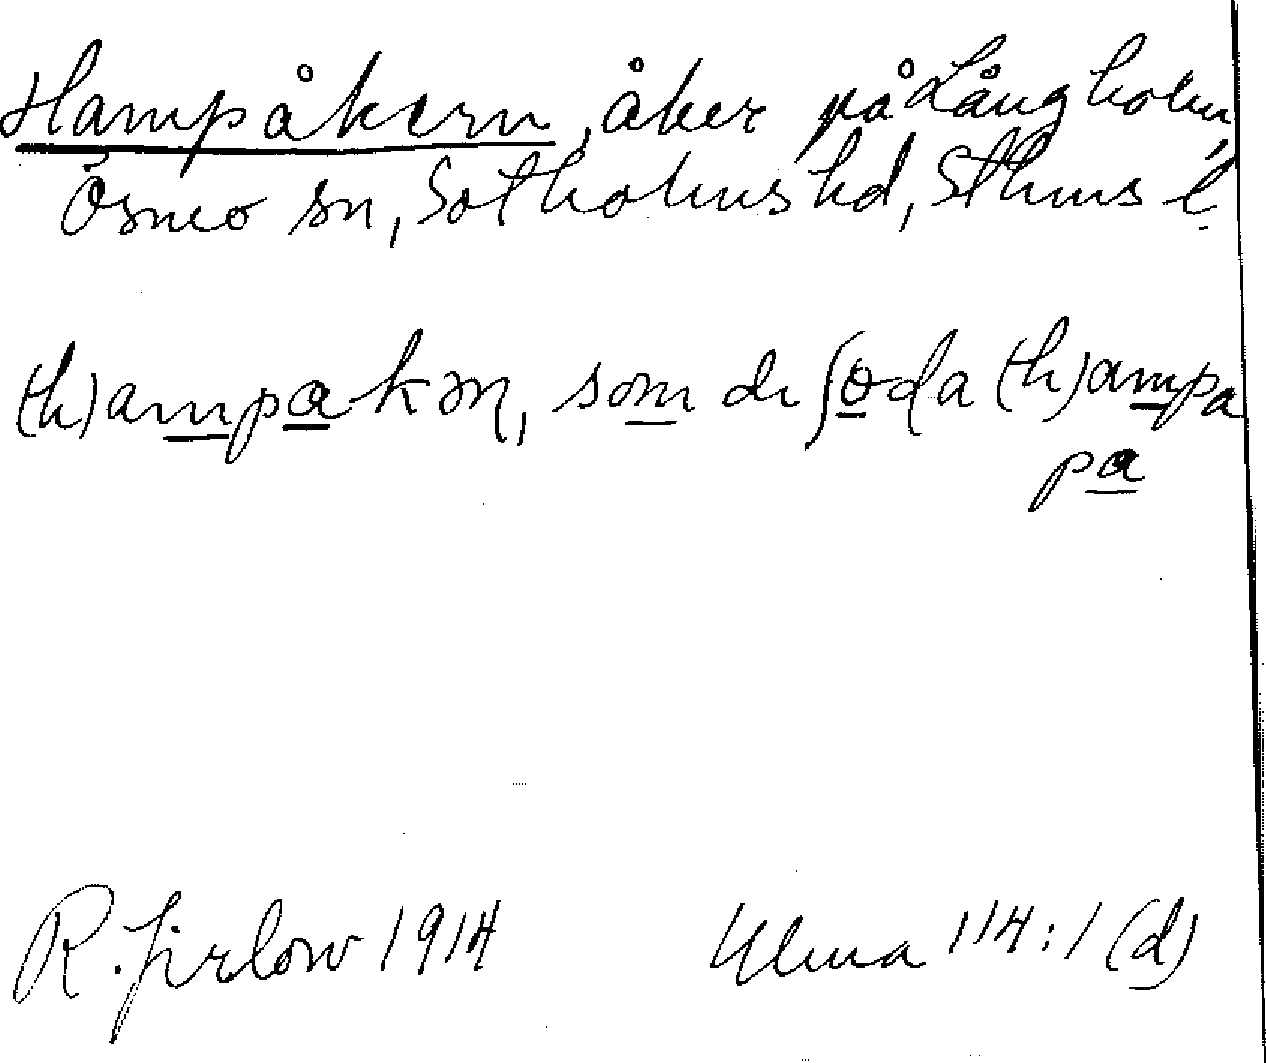 Hampåkern, åker på Långholm,
Ösmo sn, Sotholms hd, Sthms l.
(h)ampakən, som di ʃɵda (h)ampa
pa
R. Jirlow 1914 Ulma 114:1 (d)